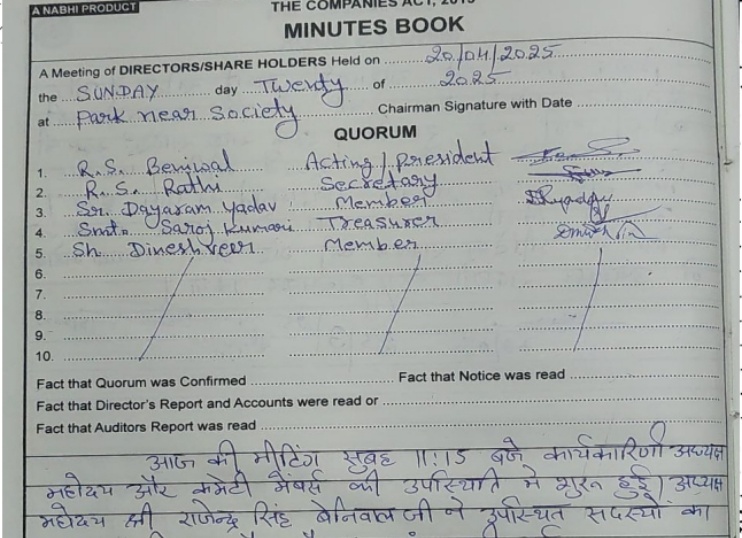 A NABHI PRODUCT
THE COMPANIES ACT, 2013
MINUTES BOOK
A Meeting of DIRECTORS/SHARE HOLDERS Held on 20/04/2025
the SUNDAY day Twenty of 2025
at Park near Society Chairman Signature with Date
QUORUM
1. R.S. Beniwal Acting/president
2. R.S. Rathi Secretary
3. Sr. Dayaram Yadav Member
4. Smt. Saroj Kumari Treasurer
5. Sh Dinesh Veer Member
6.
7.
8.
9.
10.
Fact that Quorum was Confirmed Fact that Notice was read
Fact that Director's Report and Accounts were read or
Fact that Auditors Report was read
आज की मीटिंग सुबह 11:15 बजे कार्यकारिणी अध्यक्ष
महोदय और कमेटी मेंबर्स की उपस्थिति मे शुरू हुई। अध्यक्ष
महोदय श्री राजेन्द्र सिंह बेनिवाल जी ने उपस्थित सदस्यों का